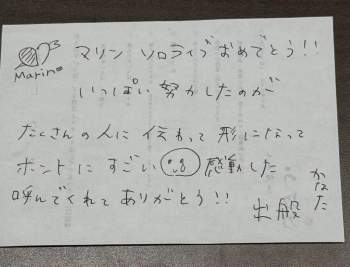 Marine
マリン ソロライブ おめでとう!!
いっぱい 努力したのが
たくさんの人に 伝わって 形になって
ホントに すごい 感動した
呼んでくれて ありがとう!!
かなた